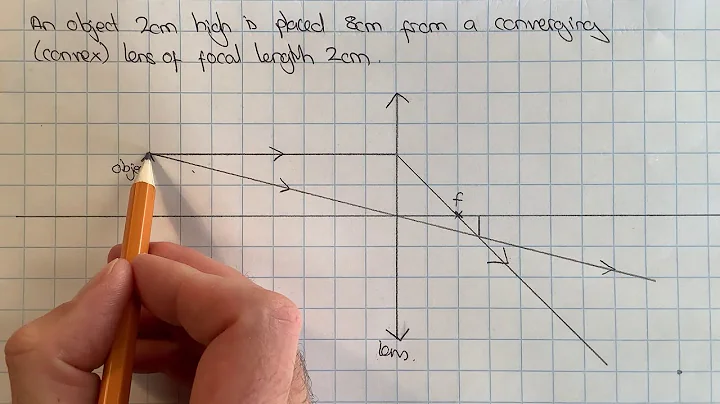 An object 2cm high is placed 8cm from a converging
(convex) lens of focal length 2cm.
f
lens.